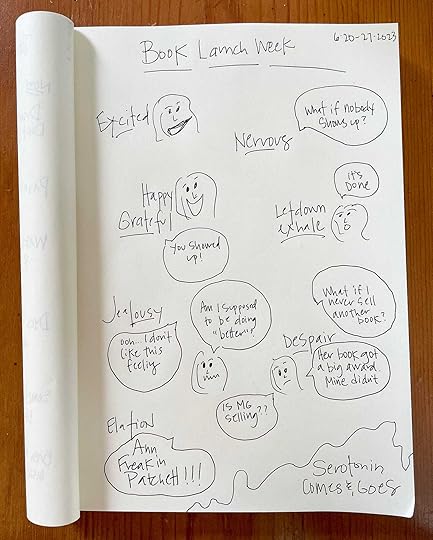 6-20-27-2023
Book Launch Week
Excited
What if nobody
Shows up?
Nervous
It's
Done
Happy
Grateful
Letdown
exhale
You showed
up!
What if I
never sell
another
book?
Jealousy
Am I supposed
to be doing
"better"?
ooh... I don't
like this
feeling
Despair
Her book got
a big award.
Mine didn't
Is MG
selling??
Elation
Ann
Freakin
Patchett!!!
Serotonin
Comes & Goes